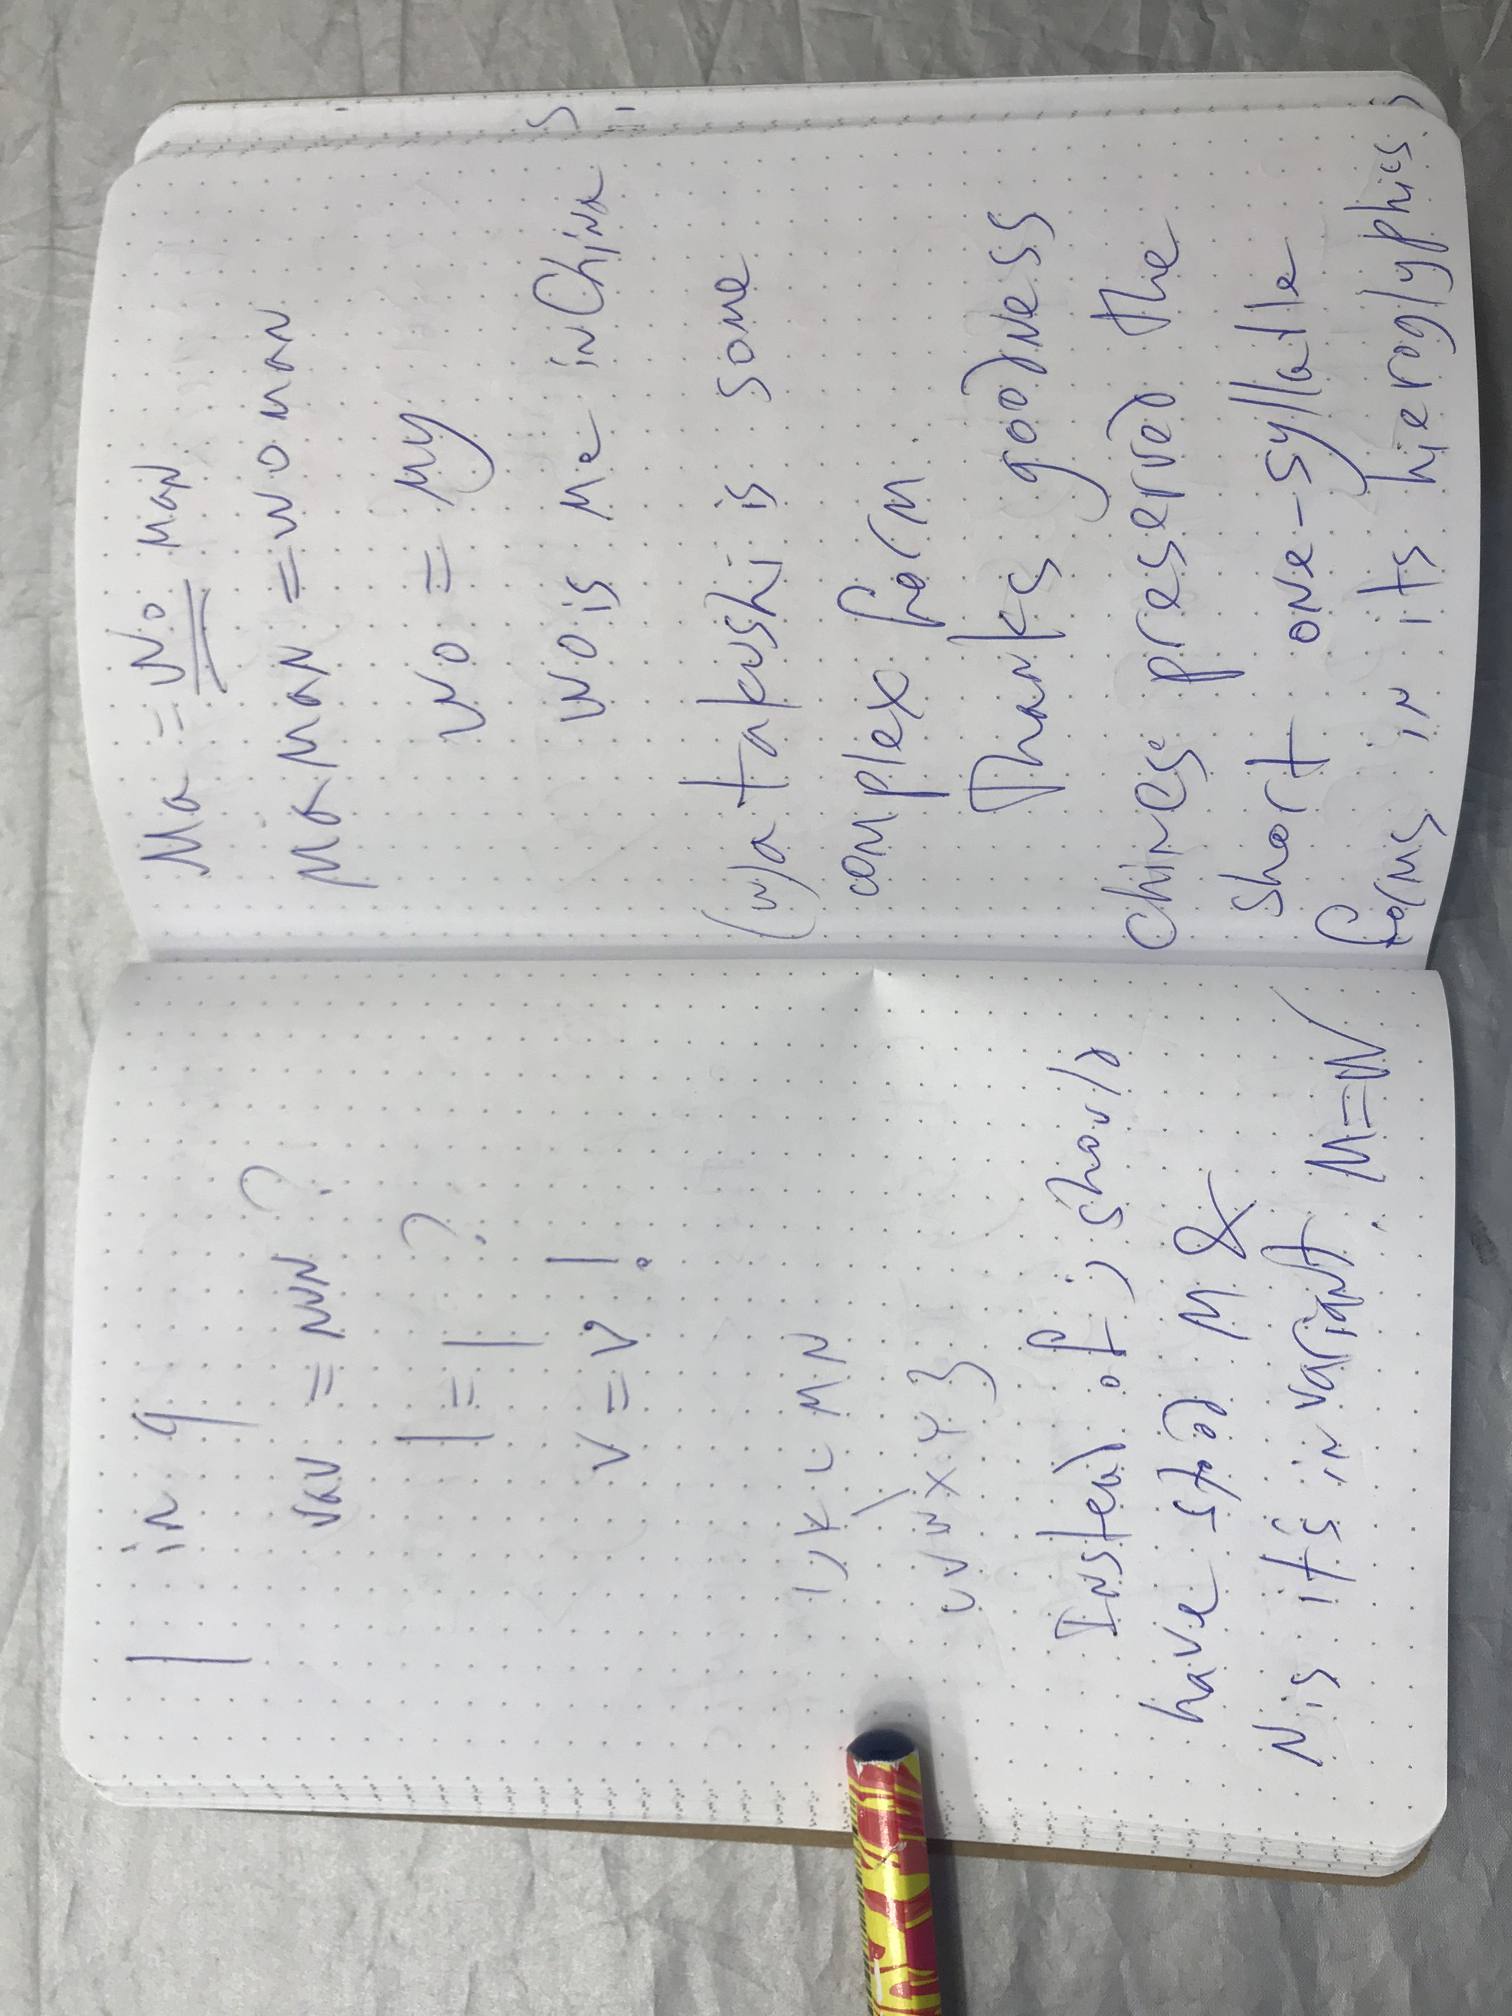 | in 9
vav = nun ?
| = | ?
v = v !
I J K L M N
U V W X Y 3
Instead of J should
have stod M &
N is it's invariant. M=W
Ma = Wo man
Ma Man = Woman
Wo = My
Wo is Me in Chinese
(w)atakushi is some
complex form.
Thanks goodness
Chinese preserved the
short one-syllable
forms in its hieroglyphics